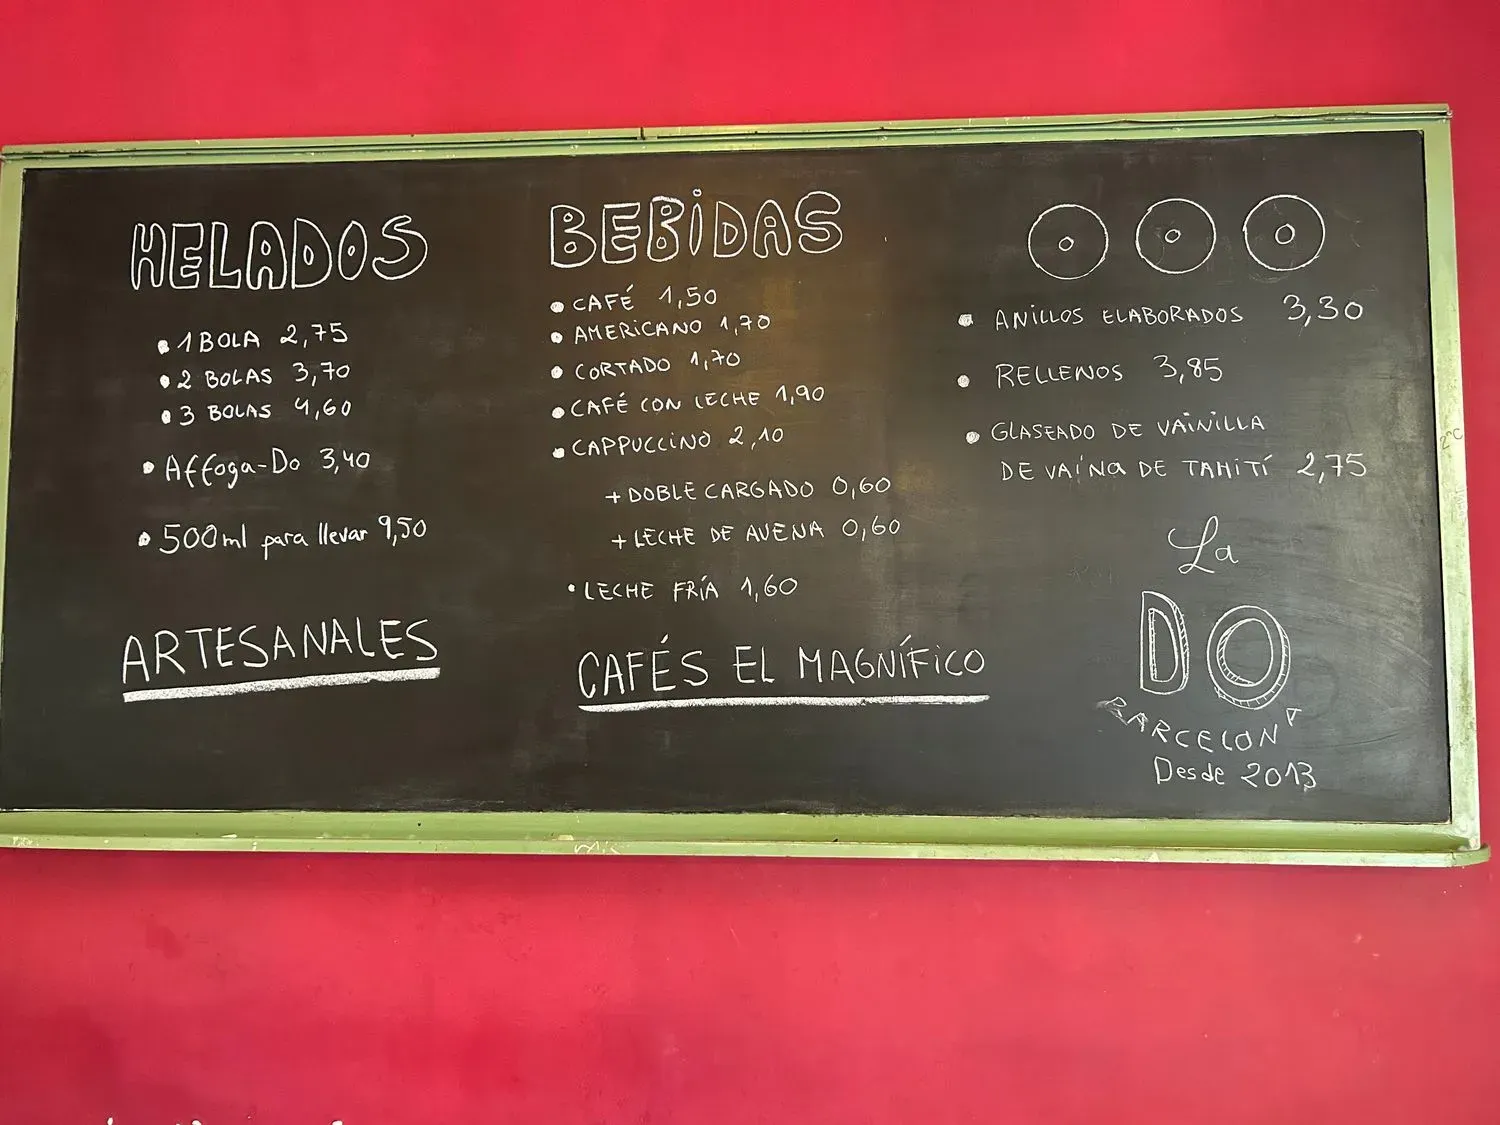 HELADOS
1 BOLA 2,75
2 BOLAS 3,70
3 BOLAS 4,60
Affoga-Do 3,40
500ml para llevar 9,50
ARTESANALES
BEBiDAS
CAFÉ 1,50
AMERICANO 1,70
CORTADO 1,70
CAFÉ CON LECHE 1,90
CAPPUCCiNO 2,10
+ DOBLE CARGADO 0,60
+ LECHE DE AVENA 0,60
LECHE FRÍA 1,60
CAFÉS EL MAGNÍFiCO
ANiLLOS ELABORADOS 3,30
RELLENOS 3,85
GLASEADO DE VAiNiLLA
DE VAíNa DE TAHiTí 2,75
La
DO
BARCELONA
Desde 2013
2°C